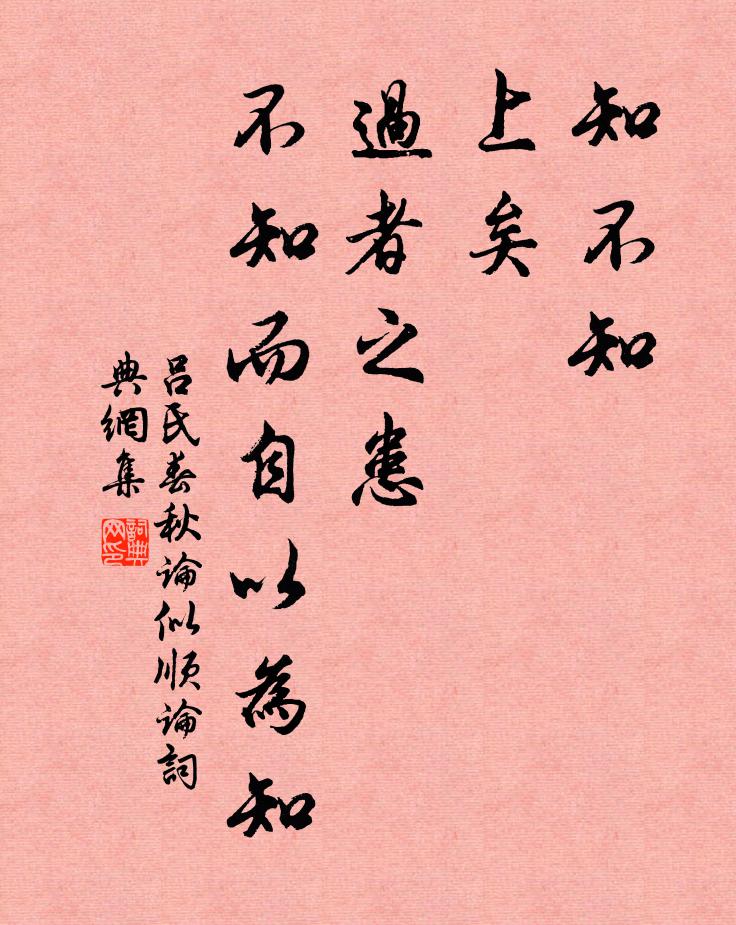 知不知
上矣
過者之患
不知而自以為知
吕氏春秋論似順論詞
典網集
詞典網印